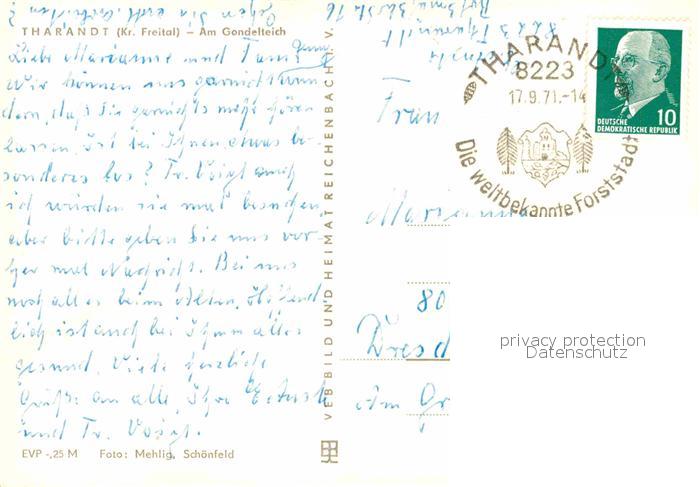 THARANDT (Kr. Freital) — Am Gondelteich
Liebe Marianne und Fam.!
wir können uns garnicht wun
dern, daß Sie garnichts mehr hören
lassen. Ist bei Ihnen etwas be-
sonderes los? Fr. Voigt auch
ich würden sie mal besuchen,
aber bitte geben Sie uns vor-
her mal Nachricht. Bei uns
noch alles beim Alten, hoffend
lich ist auch bei Ihnen alles
gesund. Viele herzliche
Grüße an alle, Ihre
und Fr. Voigt.
EVP -,25 M Foto: Mehlig, Schönfeld
VEB BILD UND HEIMAT REICHENBACH I. V.
8223 Tharandt
THARANDT
8223
17.9.71.-14
Die weltbekannte Forststadt
10
DEUTSCHE
DEMOKRATISCHE REPUBLIK
Frau
Marianne
80
Dresd
Am Gr
privacy protection
Datenschutz